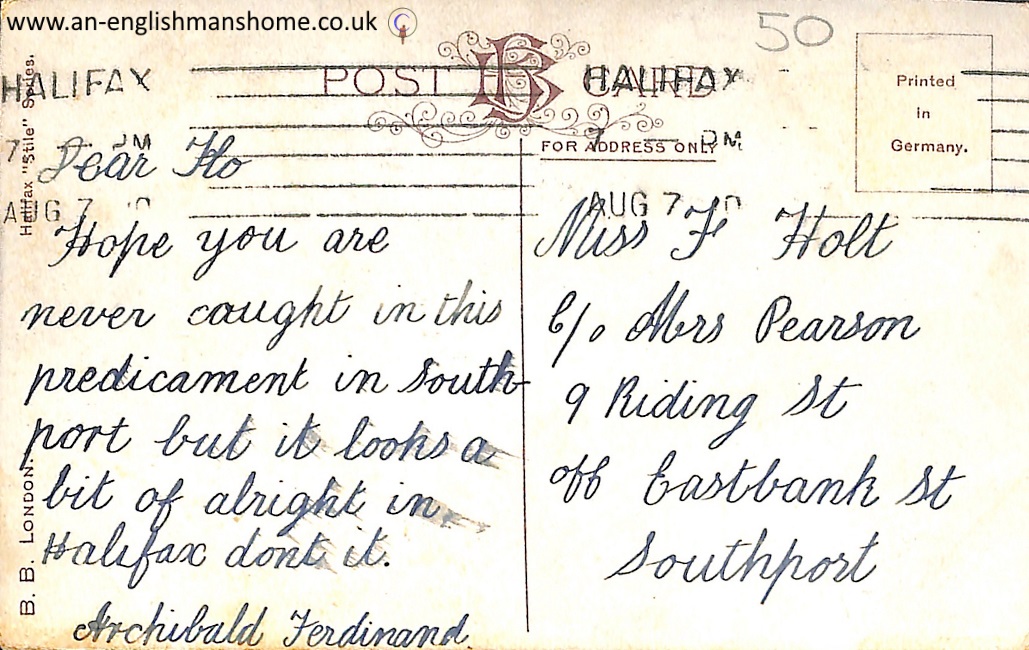 www.an-englishmanshome.co.uk
50
POST CARD
HALIFAX
HALIFAX
Printed
in
Germany.
FOR ADDRESS ONLY
7 PM
AUG 7
AUG 7
Halifax "Stile" Series.
B. B. LONDON.
Dear Flo
Hope you are
never caught in this
predicament in South-
port but it looks a
bit of alright in
Halifax dont it.
Archibald Ferdinand.
Miss F Holt
C/o Mrs Pearson
9 Riding St
off Eastbank St
Southport